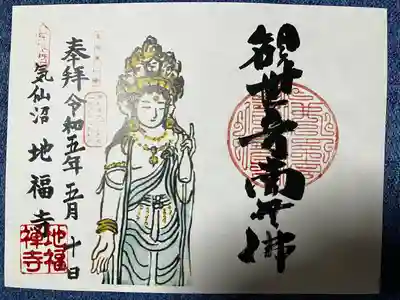 観世音南无佛
奉拝 令和五年五月十日
気仙沼 地福寺
地福
禅寺